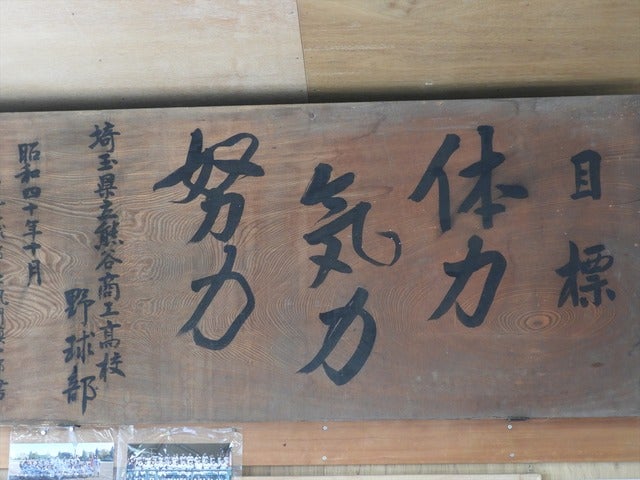 目標
体力
気力
努力
埼玉県立熊谷商工高校
野球部
昭和四十年十月